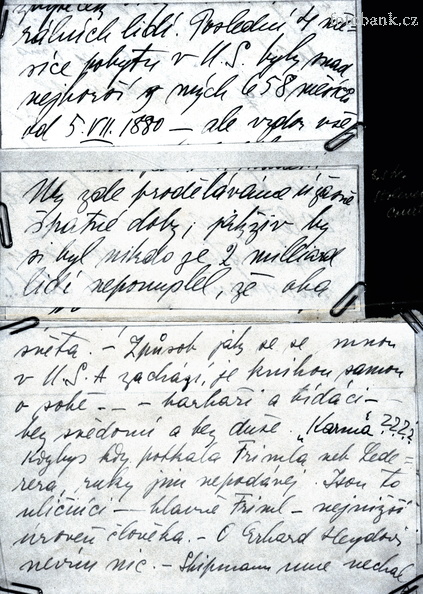 rálních lidí. Poslední 4 mě-
síce pobytu v U.S. byly snad
nejhorší z mých 658 měsíců
od 5.VII. 1880 — ale vzdor vše
My zde proděláváme úžasně
špatné doby, jakživ by
si byl nikdo ze 2 milliard
lidí nepomyslel, že oba
světa. – Způsob jaky se se mnou
v U.S.A zachází, je knihou samou
o sobě – – – barbaři a zlodáci –
bez svědomí a bez duše. „Karma" ????
Kdybys kdy potkala Frimla neb Lede-
rera, ruky jim nepodávej. Jsou to
uličníci – hlavně Friml – nejnižší
úroveň člověka. – O Erhard Heydovi
nevím nic. – Shipmann mne nechal